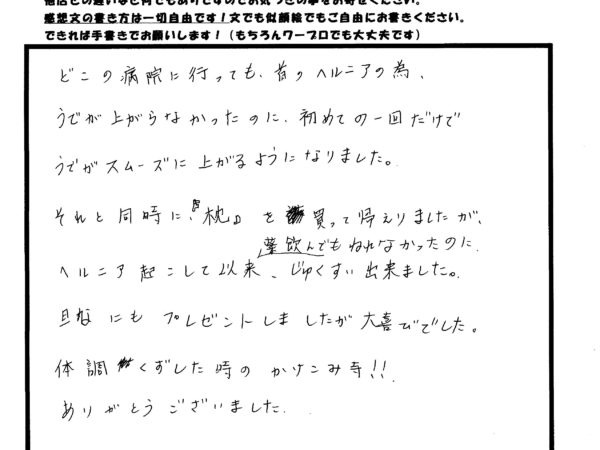 他店との違いなど何でもありですのでお気づきの事をお寄せください。
感想文の書き方は一切自由です！文でも似顔絵でもご自由にお書きください。
できれば手書きでお願いします！（もちろんワープロでも大丈夫です）
どこの病院に行っても、首のヘルニアの為、
うでが上がらなかったのに、初めての一回だけで
うでがスムーズに上がるようになりました。
それと同時に、『枕』を買って帰えりましたが、
薬飲んでもねれなかったのに、
ヘルニア起こして以来、じゅくすい出来ました。
旦なにもプレゼントしましたが大喜びでした。
体調くずした時のかけこみ寺!!
ありがとうございました。